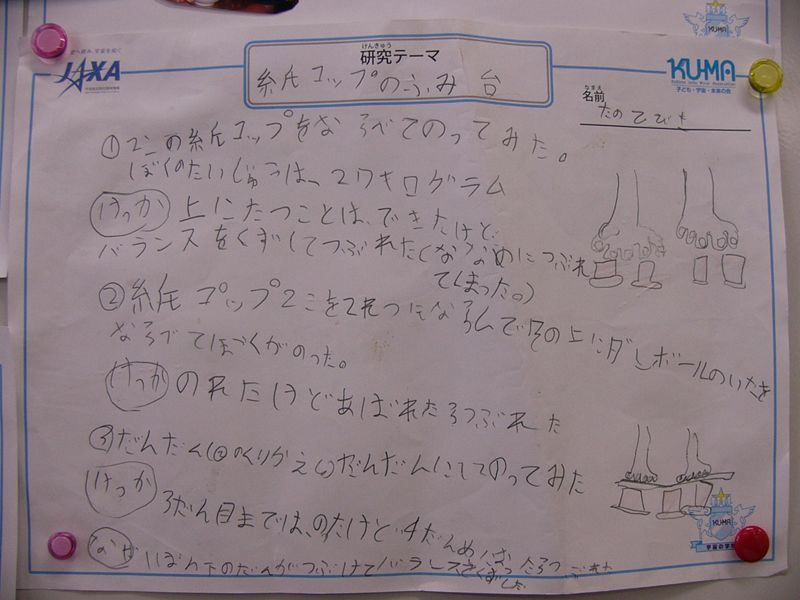 KUMA
空へ挑み、宇宙を拓く
JAXA
けんきゅう
研究テーマ
紙コップのふみ台
KUMA
子ども・宇宙・未来の会
なまえ
名前
たの ひびき
①2この紙コップをならべてのってみた。
ぼくのたいじゅうは、27キログラム
けっか 上にたつことは、できたけど
バランスをくずしてつぶれた(ななめにつぶれ
てしまった。)
②紙コップ2こを2れつにならんでその上にダンボールのいたを
ならべてぼくがのった。
けっか のれたけどあばれたらつぶれた
③だんだん(②のくりかえし)だんだんにしてのってみた
けっか 3だん目までは、のたけど4だんめ たらつぶれた
なぜ いちばん下のだんがつぶけてバランスをくずした
KUMA
宇宙の学校